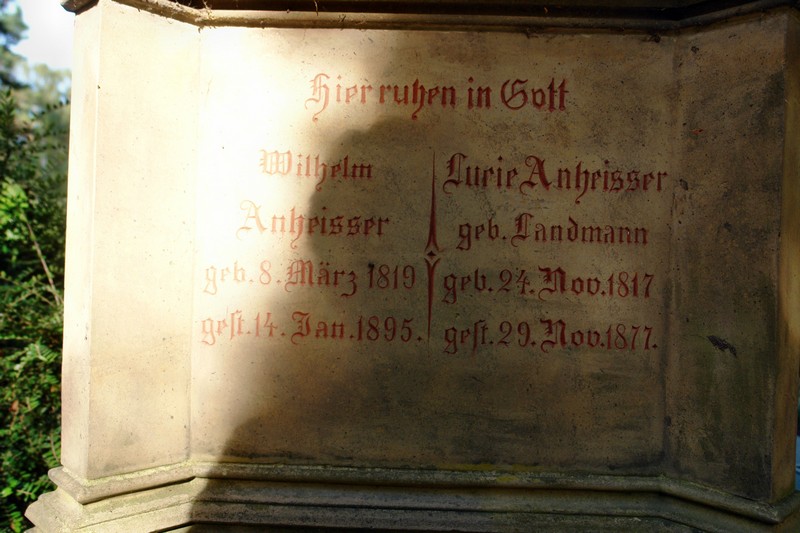 Hier ruhen in Gott
Wilhelm
Anheisser
geb. 8. März 1819
gest. 14. Jan. 1895.
Lucie Anheisser
geb. Landmann
geb. 24. Nov. 1817
gest. 29. Nov. 1877.